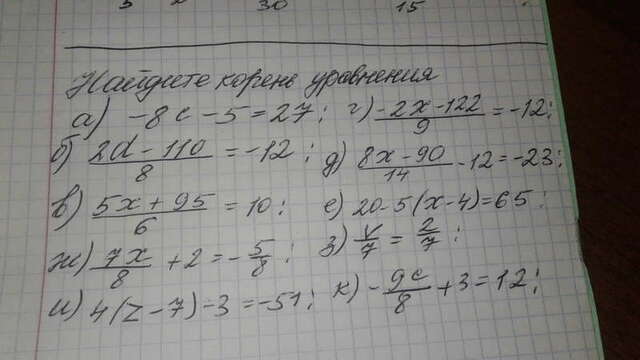 5 30 15
Найдите корень уравнения
а) -8c - 5 = 27; г) (-2x - 122)/9 = -12;
б) (2d - 110)/8 = -12; д) (8x - 90)/14 - 12 = -23;
в) (5x + 95)/6 = 10; е) 20 - 5(x - 4) = 65;
ж) 7x/8 + 2 = -5/8; з) v/7 = 2/7;
и) 4(z - 7) - 3 = -51; к) -9c/8 + 3 = 12;